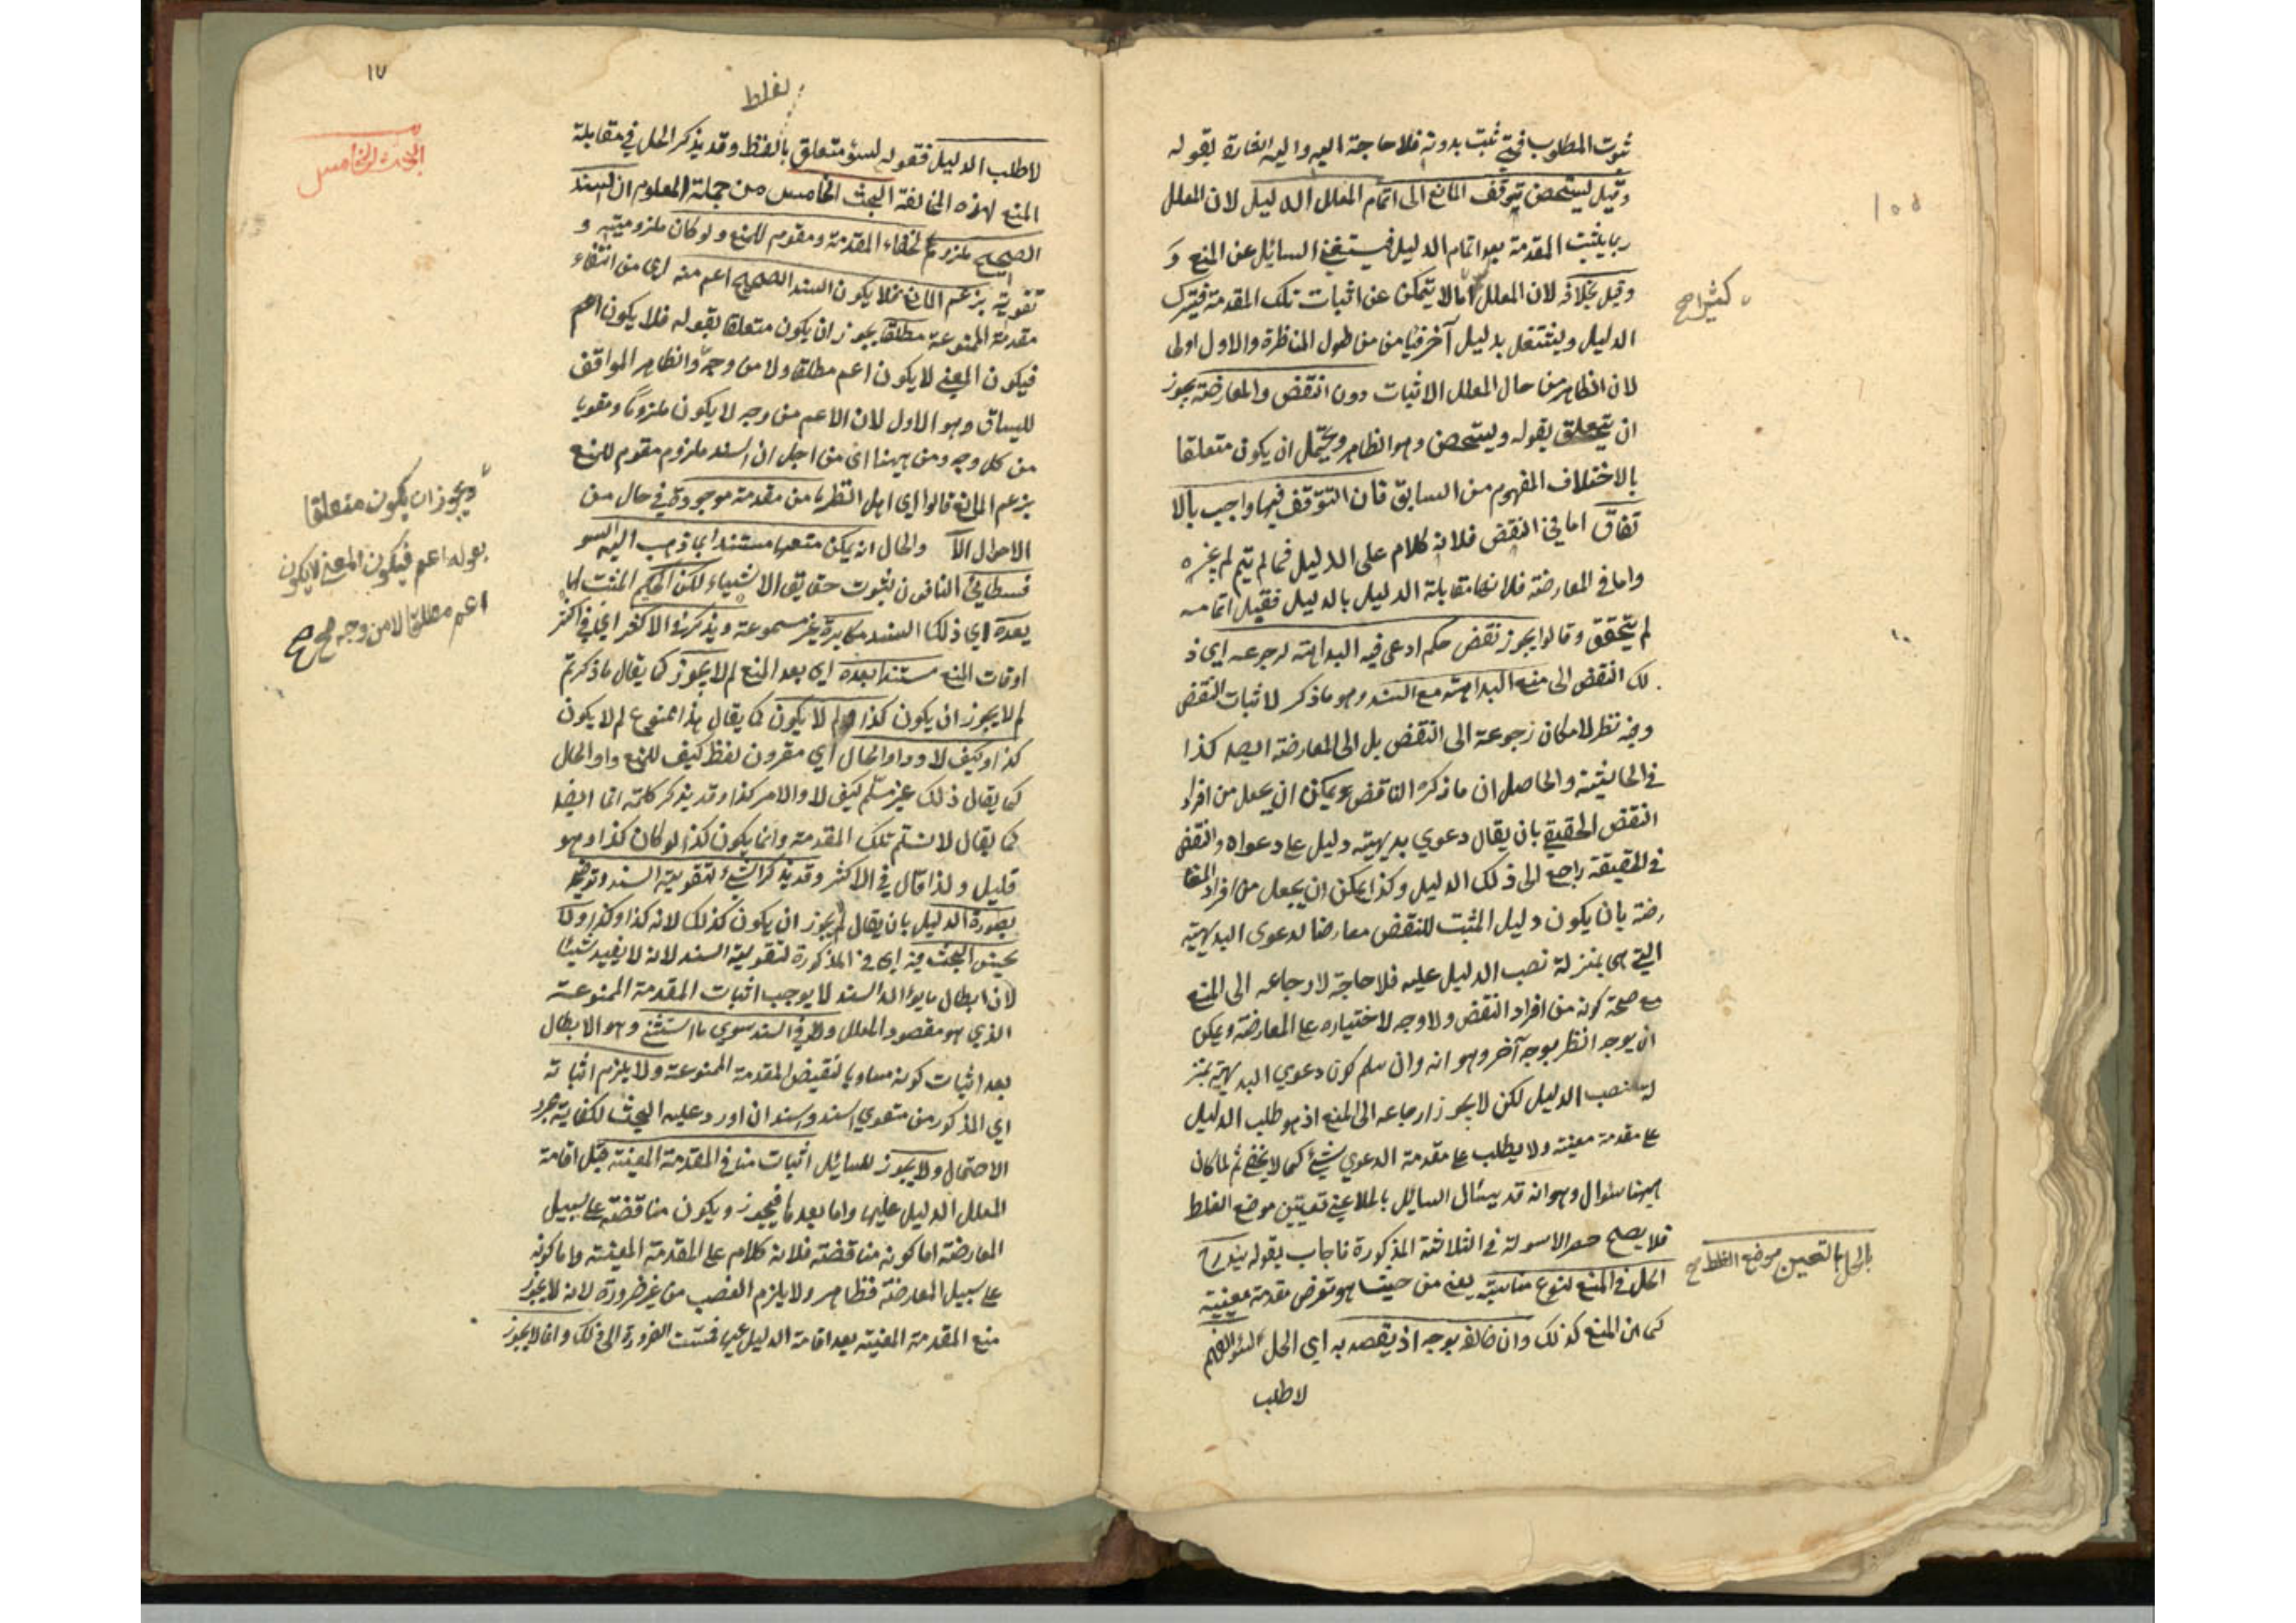 ثبوت المطلوب فمتى ثبت بدونه فلا حاجة اليه واليه اشارة بقوله
وقيل يستحسن توقف المانع الى اتمام المعلل الدليل لان المعلل
ربما يثبت المقدمة بعد اتمام الدليل فيستغنى السائل عن المنع و
وقيل بخلافه لان المعلل اما لا يتمكن عن اثبات تلك المقدمة فيترك
الدليل ويشتغل بدليل آخر فيأمن من طول المناظرة والاول اولى
لان الظاهر من حال المعلل الاثبات دون النقض والمعارضة يجوز
ان يتعلق بقوله ويستحسن وهو الظاهر ويحتمل ان يكون متعلقا
بالاختلاف المفهوم من السابق فان التوقف فيها واجب بالا
تفاق اما في النقض فلانه كلام على الدليل فما لم يتم لم يغره
واما في المعارضة فلانها مقابلة الدليل بالدليل فقبل اتمامه
لم يتحقق وقالوا يجوز نقض حكم ادعى فيه البداهة لرجوعه اي ذ
لك النقض الى منع البداهة مع السند وهو ما ذكر لاثبات النقض
وفيه نظر لامكان رجوعه الى النقض بل الى المعارضة ايضا كذا
في الحاشية والحاصل ان ما ذكره الناقض يمكن ان يجعل من افراد
النقض الحقيقي بان يقال دعوي بديهيته دليل على دعواه والنقض
في الحقيقة راجع الى ذلك الدليل وكذا يمكن ان يجعل من افراد المعا
رضة بان يكون دليل المثبت للنقض معارضا لدعوى البديهية
التي هي بمنزلة نصب الدليل عليه فلا حاجة لارجاعه الى المنع
مع صحة كونه من افراد النقض ولا وجه لاختياره على المعارضة ويمكن
ان يوجه النظر بوجه آخر وهو انه وان سلم كون دعوي البديهية بمنز
لة نصب الدليل لكن لا يجوز ارجاعه الى المنع اذ هو طلب الدليل
على مقدمة معينة ولا يطلب على مقدمة الدعوي شئ كما لا يخفى ثم لما كان
ههنا سئوال وهو انه قد يسئال السائل بالحل اعني تعيين موضع الغلط
فلا يصح حصر الاسولة في الثلاثة المذكورة فاجاب بقوله يندرج
الحل في المنع لنوع مناسبة يعني من حيث هو تعرض مقدمة معينة
كما ان المنع كذلك وان خالفه بوجه اذ يقصد به اي الحل
لا طلب
١٥٥
كثيرا صح
بالحل بالتعيين موضع الغلط صح
١٧
لغلط
البحث الخامس
لا طلب الدليل فقوله لسئو متعلق بالغلط وقد يذكر الحل في مقابلة
المنع لهذه المخالفة البحث الخامس من جملة المعلوم ان السند
الصحيح ملزوم لخفاء المقدمة ومقوم للمنع ولو كان ملزوميته و
تقويته بزعم المانع فلا يكون السند الصحيح اعم منه اي من انتفاء
مقدمة الممنوعة مطلقا يجوز ان يكون متعلقا بقوله فلا يكون اعم
فيكون المعنى لا يكون اعم مطلقا ولا من وجه والظاهر الموافق
للسياق وهو الاول لان الاعم من وجه لا يكون ملزوما ومقويا
من كل وجه ومن ههنا اي من اجل ان السند ملزوم مقوم للمنع
بزعم المانع قالوا اي اهل النظر ما من مقدمة موجودة في حال من
الاحوال الا والحال انه يمكن منعها مستندا بما ذهب اليه السو
فسطائي النافون لثبوت حقايق الاشياء لكن الحكيم المثبت لها
يعده اي ذلك السند مكابرة غير مسموعة ويذكر في الاكثر اي في اكثر
اوقات المنع مستندا بعده اي بعد المنع لم لا يجوز كما يقال ما ذكرتم
لم لا يجوز ان يكون كذا ولم لا يكون كما يقال هذا ممنوع لم لا يكون
كذا وكيف لا وواو الحال اي مقرون لفظ كيف للمنع واو الحال
كما يقال ذلك غير مسلم كيف لا والامر كذا وقد يذكر كلمة انما ايضا
كما يقال لا نسلم تلك المقدمة وانما يكون كذا لو كان كذا وهو
قليل ولذا قال في الاكثر وقد يذكر الشئ لتقوية السند وتوضيحه
بصورة الدليل بان يقال لم يجوز ان يكون كذلك لانه كذا وكذا ولا
يحسن البحث فيه اي في المذكورة لتقوية السند لانه لا يفيد شيئا
لان ابطال ما يؤالد السند لا يوجب اثبات المقدمة الممنوعة
الذي هو مقصود المعلل ولا في السند سوي ما استثني وهو الابطال
بعد اثبات كونه مساويا لنقيض المقدمة الممنوعة ولا يلزم اثباته
اي المذكور من مقوي السند والسند ان اورد عليه البحث لكفاية مجرد
الاحتمال ولا يجوز للسائل اثبات منافي المقدمة المعينة قبل اقامة
المعلل الدليل عليها واما بعدها فيجوز ويكون مناقضة على سبيل
المعارضة اما كونه مناقضة فلانه كلام على المقدمة المعينة واما كونه
على سبيل المعارضة فظاهر ولا يلزم الغصب من غير ضرورة لانه لا يجوز
منع المقدمة المعينة بعد اقامة الدليل عليها فمست الضرورة الى ذلك وانما لا يجوز
ويجوز ان يكون متعلقا
بقوله اعم فيكون المعنى لا يكون
اعم مطلقا لا من وجه صح صح